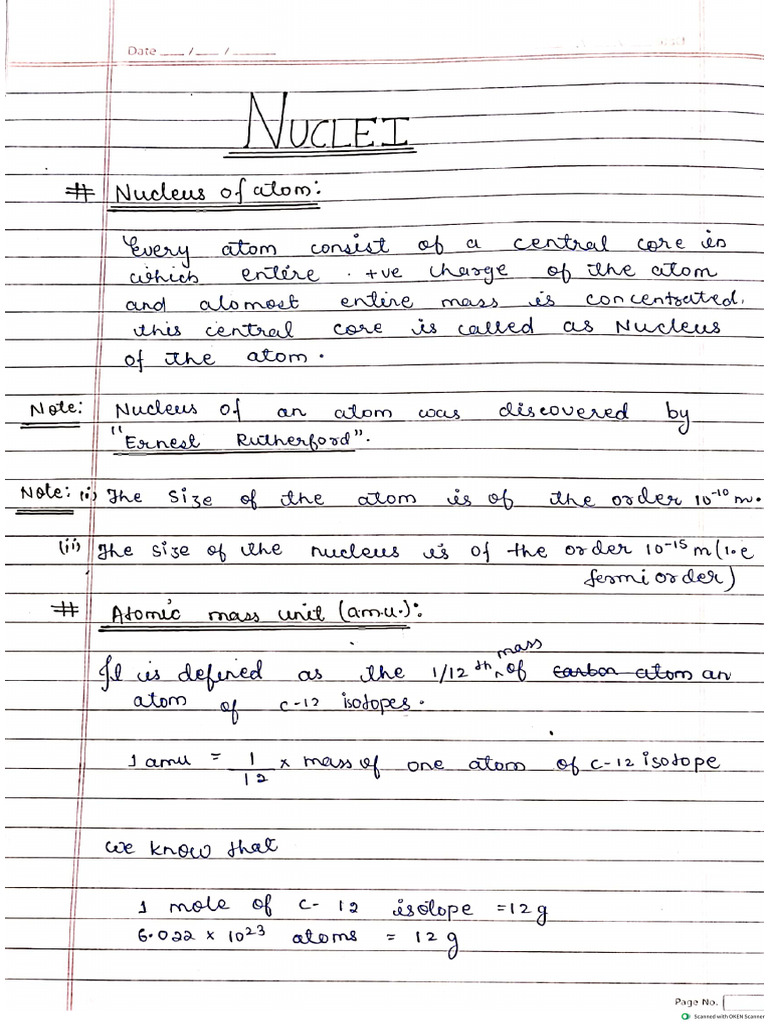 Date ___ / ___ / _____
NUCLEI
# Nucleus of atom:
Every atom consist of a central core in
which entire +ve charge of the atom
and alomost entire mass is concentrated.
this central core is called as Nucleus
of the atom.
Note: Nucleus of an atom was discovered by
"Ernest Rutherford".
Note: (i) The size of the atom is of the order 10⁻¹⁰ m.
(ii) The size of the nucleus is of the order 10⁻¹⁵ m (i.e
fermi order)
# Atomic mass unit (a.m.u.):
mass
It is defined as the 1/12 th ‸ of carbon atom an
atom of c-12 isotopes.
1 amu = 1/12 × mass of one atom of c-12 isotope
we know that
1 mole of c-12 isotope = 12 g
6.022 × 10²³ atoms = 12 g
Page No.
Scanned with OKEN Scanner